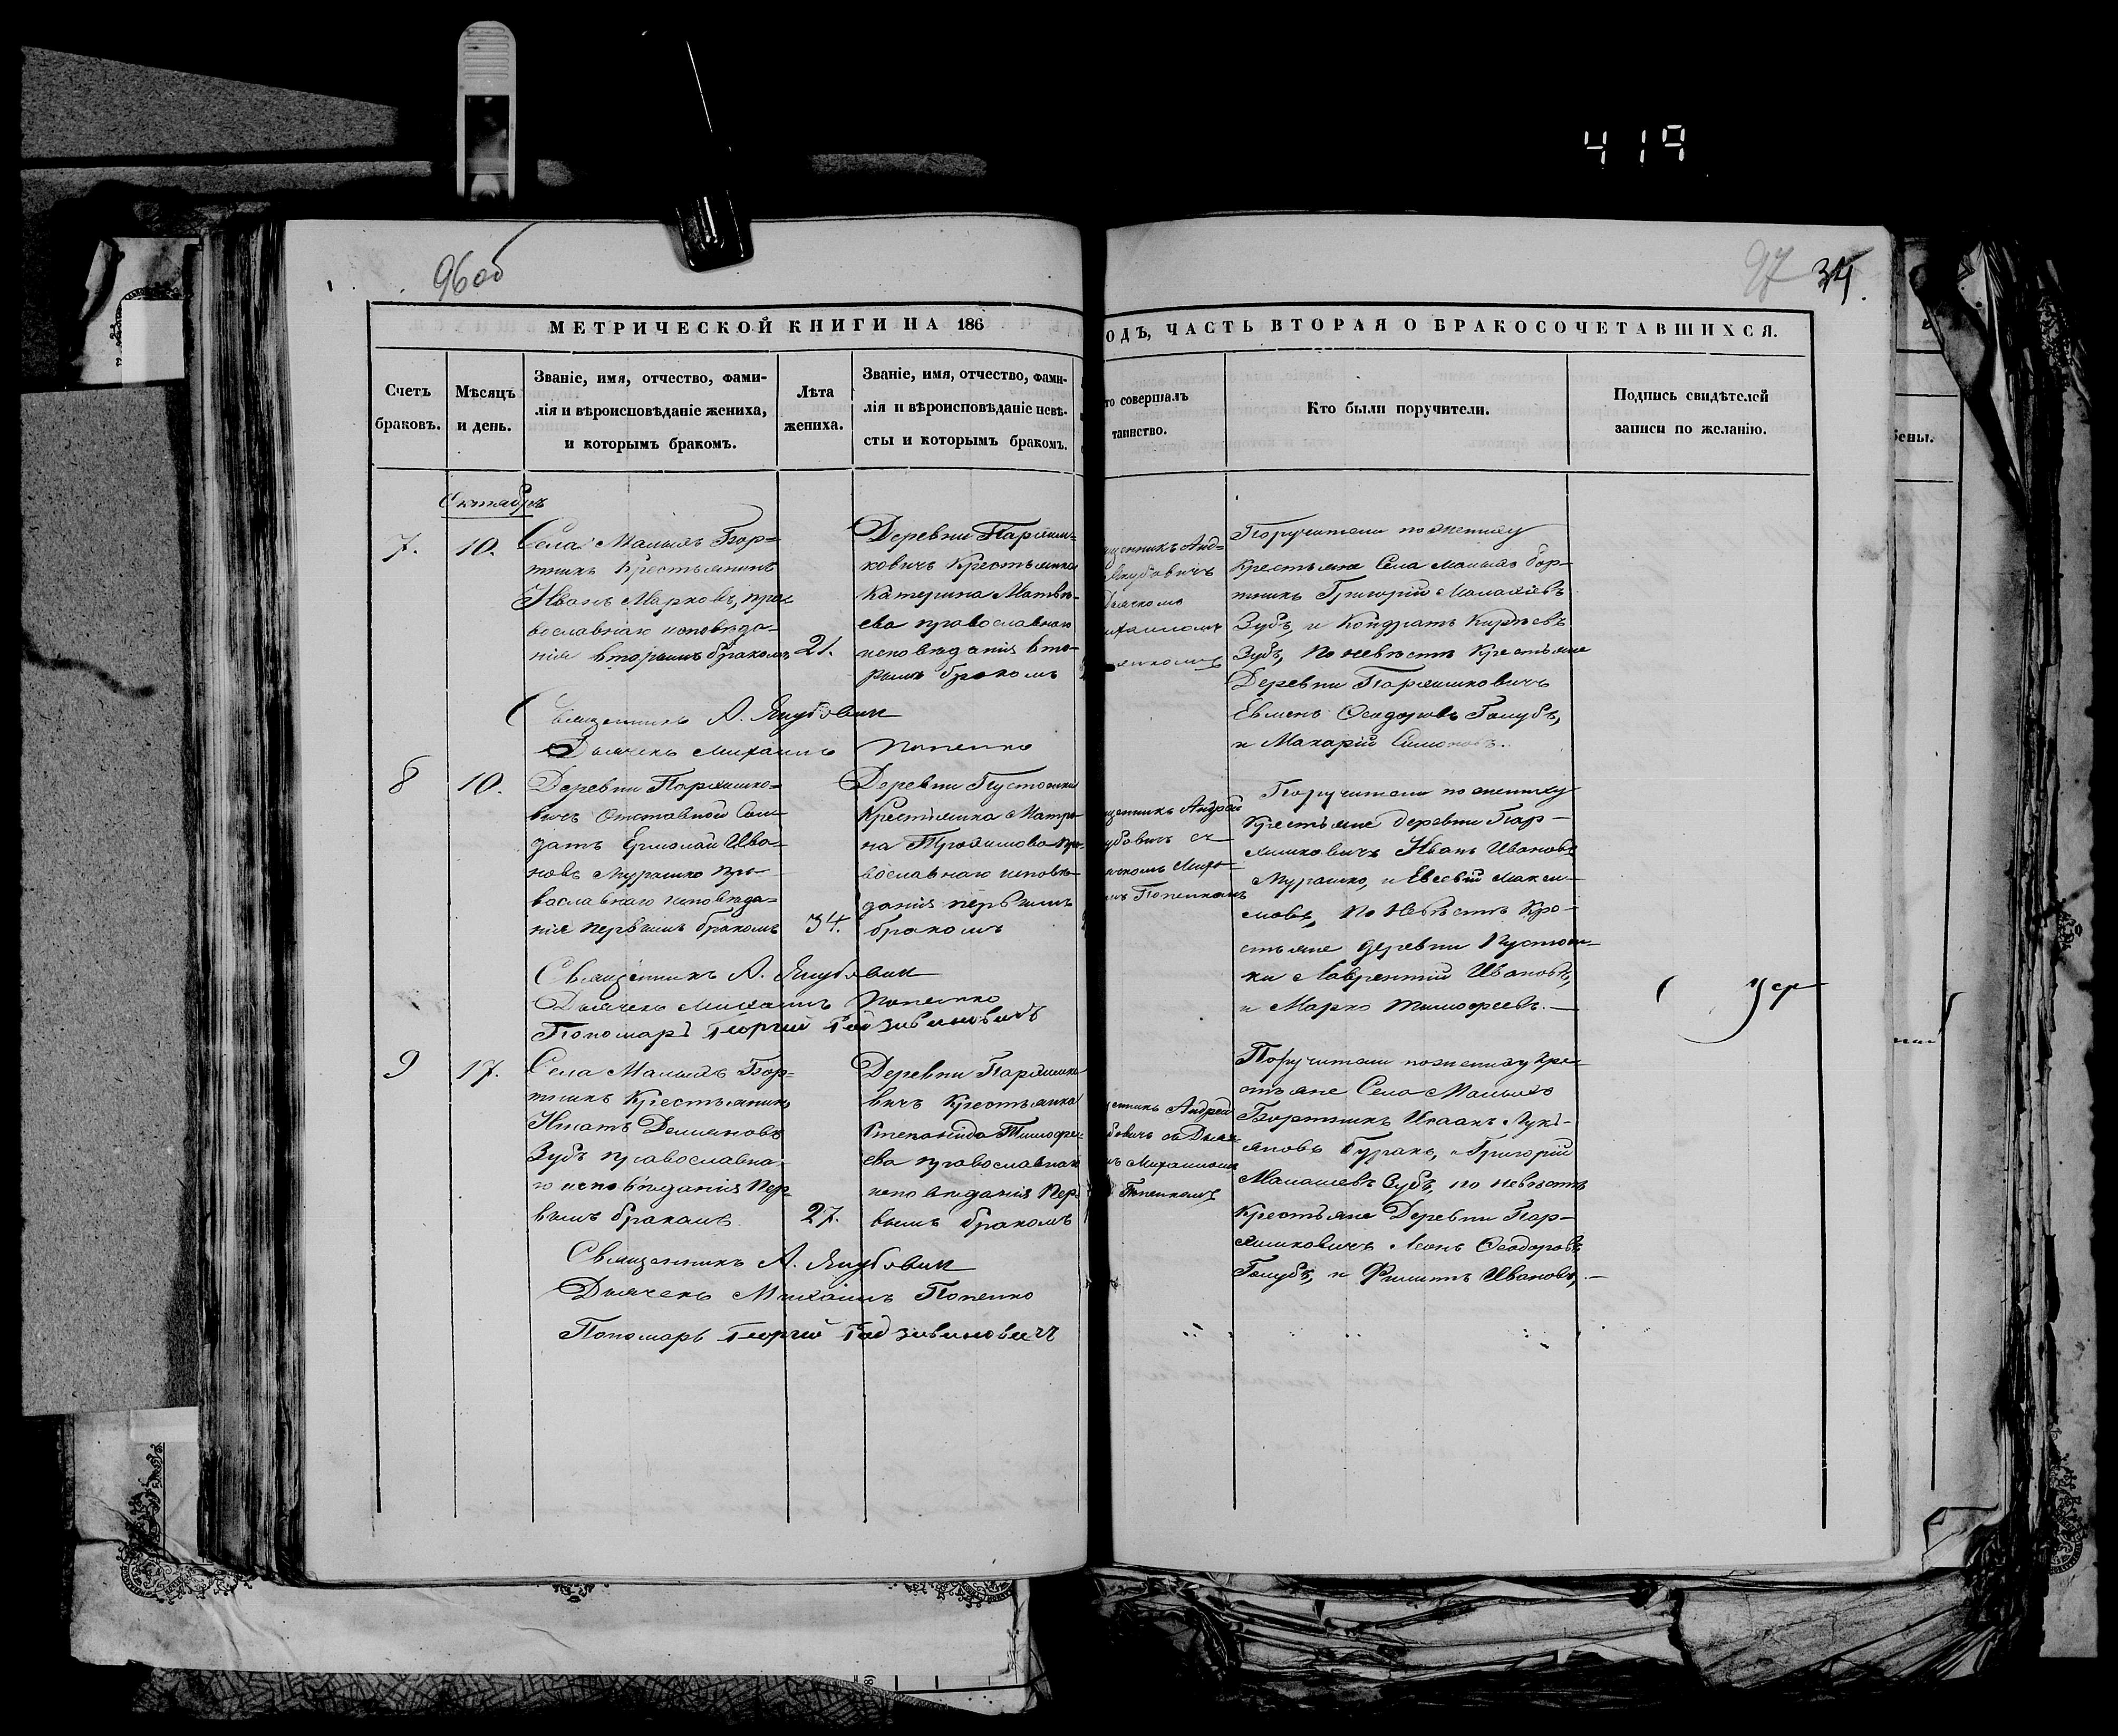 419
96об
97 34.
МЕТРИЧЕСКОЙ КНИГИ НА 186
ОДЪ, ЧАСТЬ ВТОРАЯ О БРАКОСОЧЕТАВШИХСЯ.
Счетъ браковъ.
Мѣсяцъ и день.
Званіе, имя, отчество, фами-
лія и вѣроисповѣданіе жениха,
и которымъ бракомъ.
Лѣта жениха.
Званіе, имя, отчество, фами-
лія и вѣроисповѣданіе невѣ-
сты и которымъ бракомъ.
то совершалъ
таинство.
Кто были поручители.
Подпись свидѣтелей
записи по желанію.
Октябрь
7.
10.
Села Малыхъ Бор-
тникъ Крестьянинъ
Иванъ Марковъ, пра
вославнаго исповѣда-
нія вторымъ бракомъ
21.
Деревни Пархим-
ковичъ Крестьянка
Катерина Матвѣ-
ева православнаго
исповѣданія вто-
рымъ бракомъ
щенникъ Анд-
Якубовичъ
Дьячкомъ
ихаиломъ
енкомъ
Поручители по жениху
Крестьяне Села малыхъ бор-
тникъ Григорій Малахіевъ
Зубъ, и Кондратъ Кирѣевъ
Зубъ, По невѣстѣ Крестьяне
Деревни Пархимковичъ
Евменъ Ѳеодоровъ Голубъ,
и Макарій Симоновъ.
Священникъ А. Якубович
Дьячекъ Михаилъ Попенко
8
10.
Деревни Пархимко-
вичъ Отставной Сол-
датъ Ермолай Ива-
новъ Мурашко пра-
вославнаго исповѣда-
нія первымъ бракомъ
34.
Деревни Пустошки
Крестьянка Матро-
на Трохимова пра-
вославнаго исповѣ-
данія первымъ
бракомъ
щенникъ Андрей
убовичъ съ
ячкомъ Миха-
мъ Попенкомъ
Поручители по жениху
Крестьяне деревни Пар-
химковичъ Иванъ Ивановъ
Мурашко, и Евсевій Макси-
мовъ, По Невѣстѣ Кре-
стьяне деревни Пустош-
ки Лаврентій Ивановъ,
и Марко Тимофеевъ.
Священникъ А. Якубович
Дьячекъ Михаилъ Попенко
Пономарь Георгій Годзивиновичъ
9
17.
Села Малыхъ Бор-
тникъ Крестьянинъ
Игнатъ Демяновъ
Зубъ православна-
го исповѣданія Пер-
вымъ бракомъ
27.
Деревни Пархимко
вичъ Крестьянка
Степанида Тимофе-
ева православнаго
исповѣданія Пер-
вымъ бракомъ
щенникъ Андрей
бовичъ съ Дья
мъ Михаиломъ
Попенкомъ
Поручители по жениху кре-
стьяне Села Малыхъ
Бортникъ Исаакъ Лукі-
яновъ Буракъ, Григорій
Малашевъ Зубъ, по невѣстѣ
Крестьяне Деревни Пар-
химковичъ Леонъ Ѳеодоровъ
Голубъ, и Филиппъ Ивановъ,
Священникъ А. Якубович
Дьячекъ Михаилъ Попенко
Пономарь Георгій Годзивиновичъ